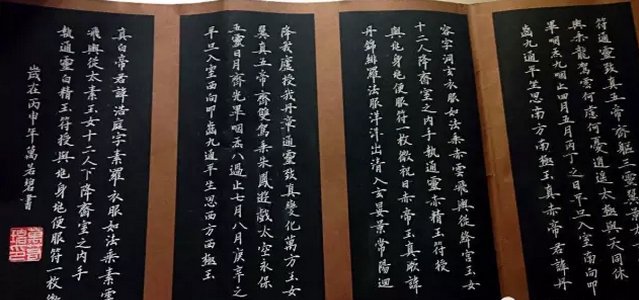 符通靈致真五帝齊軀三靈
與乘龍駕雲何慮何憂逍遙太極與天同休
畢咽炁九咽止四月五月丙丁之日平旦入室南向叩
齒九通平坐思南方南極玉真赤帝君諱丹
容字洞玄衣服如法乘赤雲飛輿從絳宮玉女
十二人降齋室之內手執通靈赤精玉符授
與兆身兆便服符一枚微祝曰赤帝玉真厥諱
丹錦緋羅法服洋洋出清入玄晏景常陽迴
降我廬授我丹章通靈致真變化萬方玉女
翼真五帝齊雙駕乘朱鳳遊戲太空永保
五靈日月齊光畢咽炁八過止七月八月庚辛之日
平旦入室西向叩齒九通平坐思西方西極玉
真白帝君諱浩庭字素羅衣服如法乘素雲
飛輿從太素玉女十二人下降齋室之內手
執通靈白精玉符授與兆身兆便服符一枚微
歲在丙申年萬若碧書